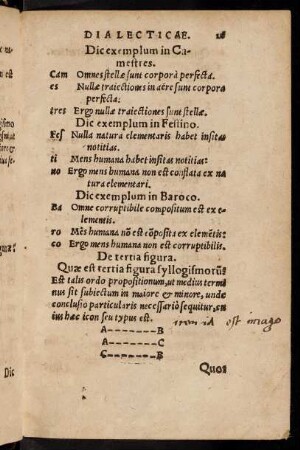 DIALECTICAE.
Dic exemplum in Ca-
mestres.
Cam Omnes stellæ sunt corpora perfecta.
es Nullæ traiectiones in aëre sunt corpora
perfecta:
tres Ergo nullæ traiectiones sunt stellæ.
Dic exemplum in Festino.
Fes Nulla natura elementaris habet insitas
notitias.
ti Mens humana habet insitas notitias:
no Ergo mens humana non est conflata ex na
tura elementari.
Dic exemplum in Baroco.
Ba Omne corruptibile compositum est ex e-
lementis.
ro Mēs humana nō est cōposita ex elemētis:
co Ergo mens humana non est corruptibilis.
De tertia figura.
Quæ est tertia figura syllogismorū?
Est talis ordo propositionum, ut medius termi
nus sit subiectum in maiore & minore, unde
conclusio particularis necessariò sequitur, cu
ius hæc icon seu typus est.
est imago
A-------B
A-------C
C-------B
Quot
Dic